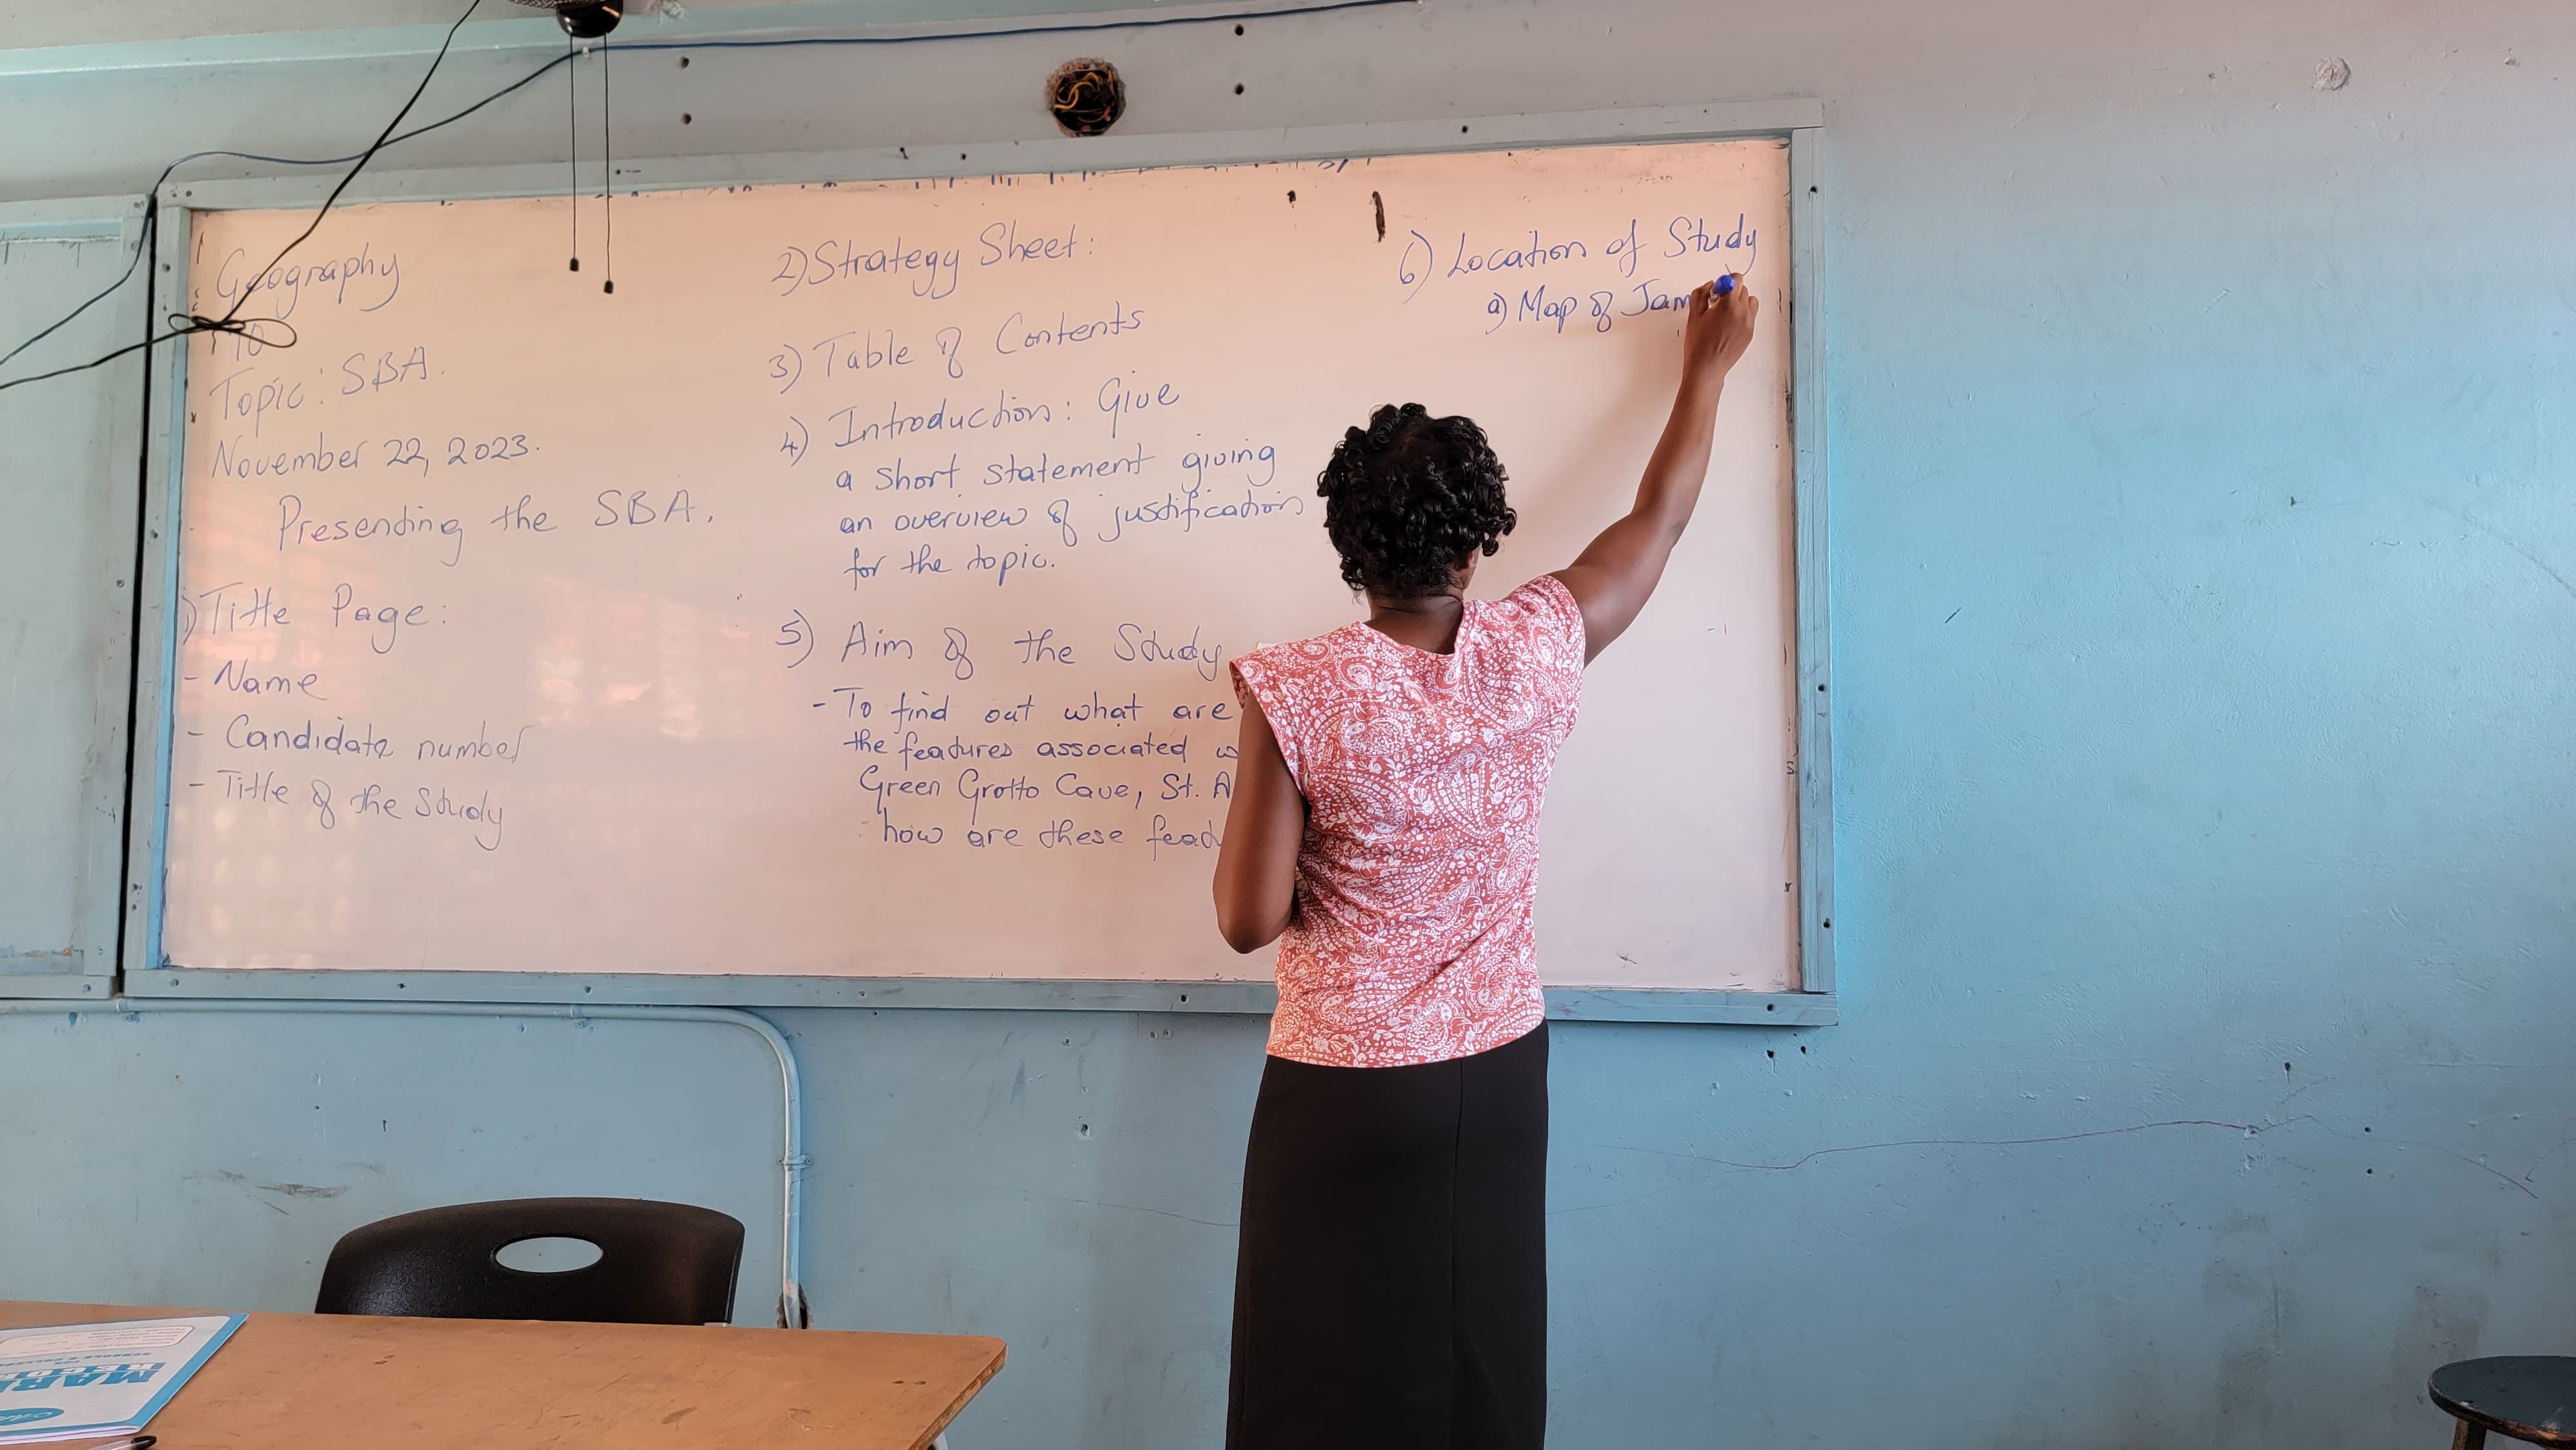 Geography
10
Topic: SBA.
November 22, 2023.
Presenting the SBA.
1) Title Page:
- Name
- Candidate number
- Title of the Study
2) Strategy Sheet:
3) Table of Contents
4) Introduction: Give
a short statement giving
an overview of justification
for the topic.
5) Aim of the Study
- To find out what are
the features associated
Green Grotto Cave, St. A
how are these feat
6) Location of Study
a) Map of Jam